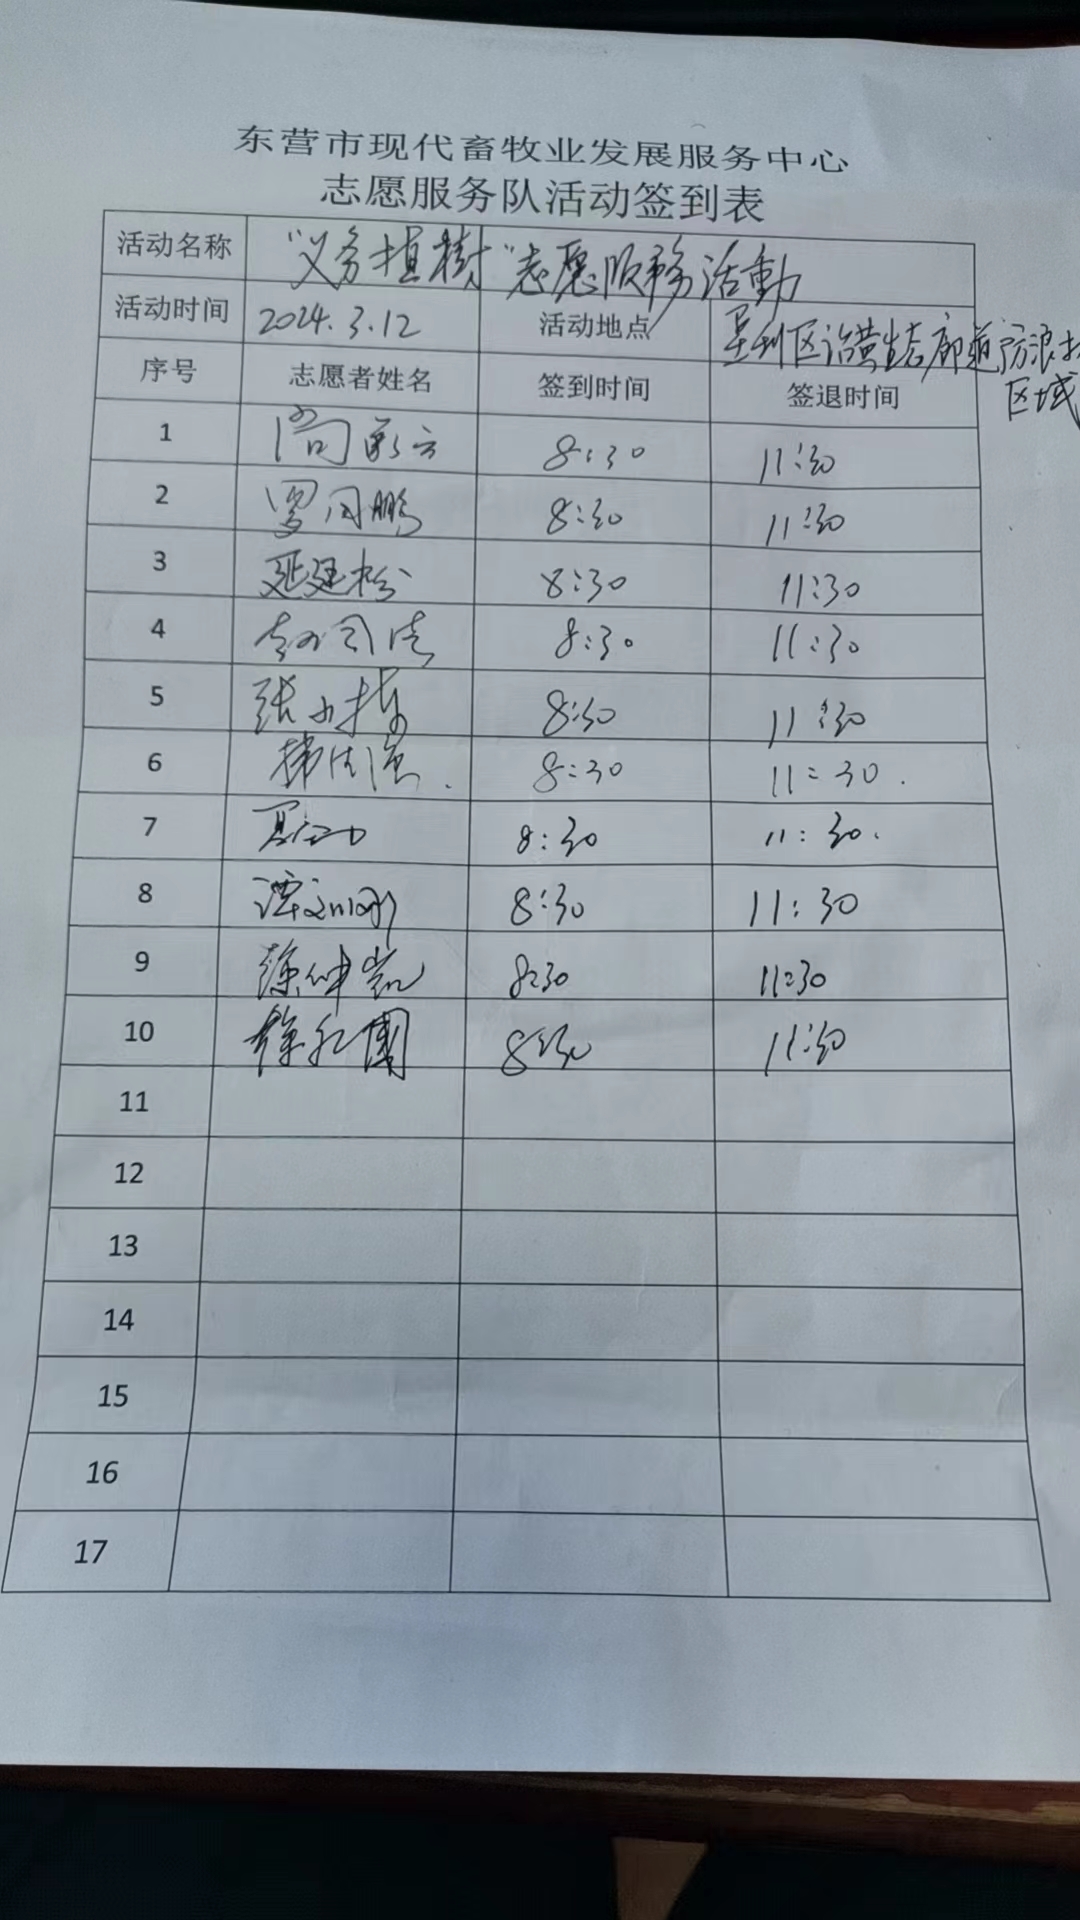 东营市现代畜牧业发展服务中心
志愿服务队活动签到表
活动名称 “义务植樹”志愿服務活動
活动时间 2024.3.12 活动地点 垦利区沿黄生态廊道防浪林
区域
序号 志愿者姓名 签到时间 签退时间
1 8:30 11:30
2 罗同鹏 8:30 11:30
3 延廷松 8:30 11:30
4 8:30 11:30
5 张 8:30 11:30
6 韩 8:30 11:30
7 8:30 11:30
8 谭 8:30 11:30
9 徐坤凯 8:30 11:30
10 徐红國 8:30 11:30
11
12
13
14
15
16
17